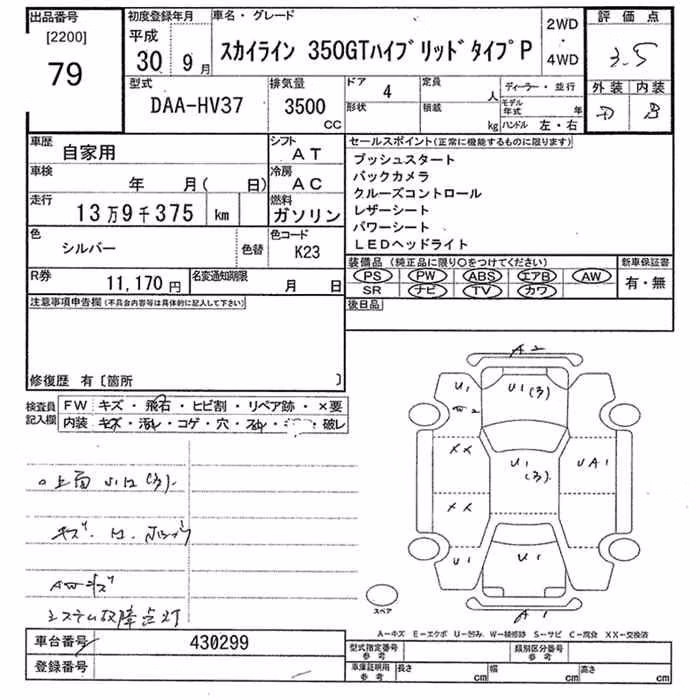 出品番号
[2200]
79
初度登録年月
平成
30 9月
車名・グレード
スカイライン 350GTハイブリッドタイプP
2WD
・
4WD
評価点
3.5
外装 内装
D B
型式
DAA-HV37
排気量
3500
CC
ドア 4
形状
定員 人
積載 kg
ディーラー・並行
モデル年式 年
ハンドル 左・右
車歴
自家用
シフト
AT
車検
年 月( 日)
冷房
AC
走行
13万9千375 km
燃料
ガソリン
色
シルバー
色替
色コード
K23
R券
11,170円
名変通知期限
月 日
セールスポイント(正常に機能するものに限ります)
プッシュスタート
バックカメラ
クルーズコントロール
レザーシート
パワーシート
LEDヘッドライト
装備品(純正品に限り○をつけてください)
新車保証書
PS PW ABS エアB AW
有・無
SR ナビ TV カワ
後日品
注意事項申告欄(不具合内容等は具体的に記入して下さい)
修復歴 有〔箇所 〕
検査員記入欄
FW キズ・飛石・ヒビ割・リペア跡・×要
内装 キズ・汚れ・コゲ・穴・ 破レ
上面
キズ
AWキズ
システム故障点灯
A2
U1
U1(3)
XX
U1
(3)
UA1
XX
U1
U1
A1
スペア
A-キズ E-エクボ U-凹み W-補修跡 S-サビ C-腐食 XX-交換済
車台番号
430299
登録番号
型式指定番号
参考
類別区分番号
参考
車庫証明用
参考
長さ cm
幅 cm
高さ cm